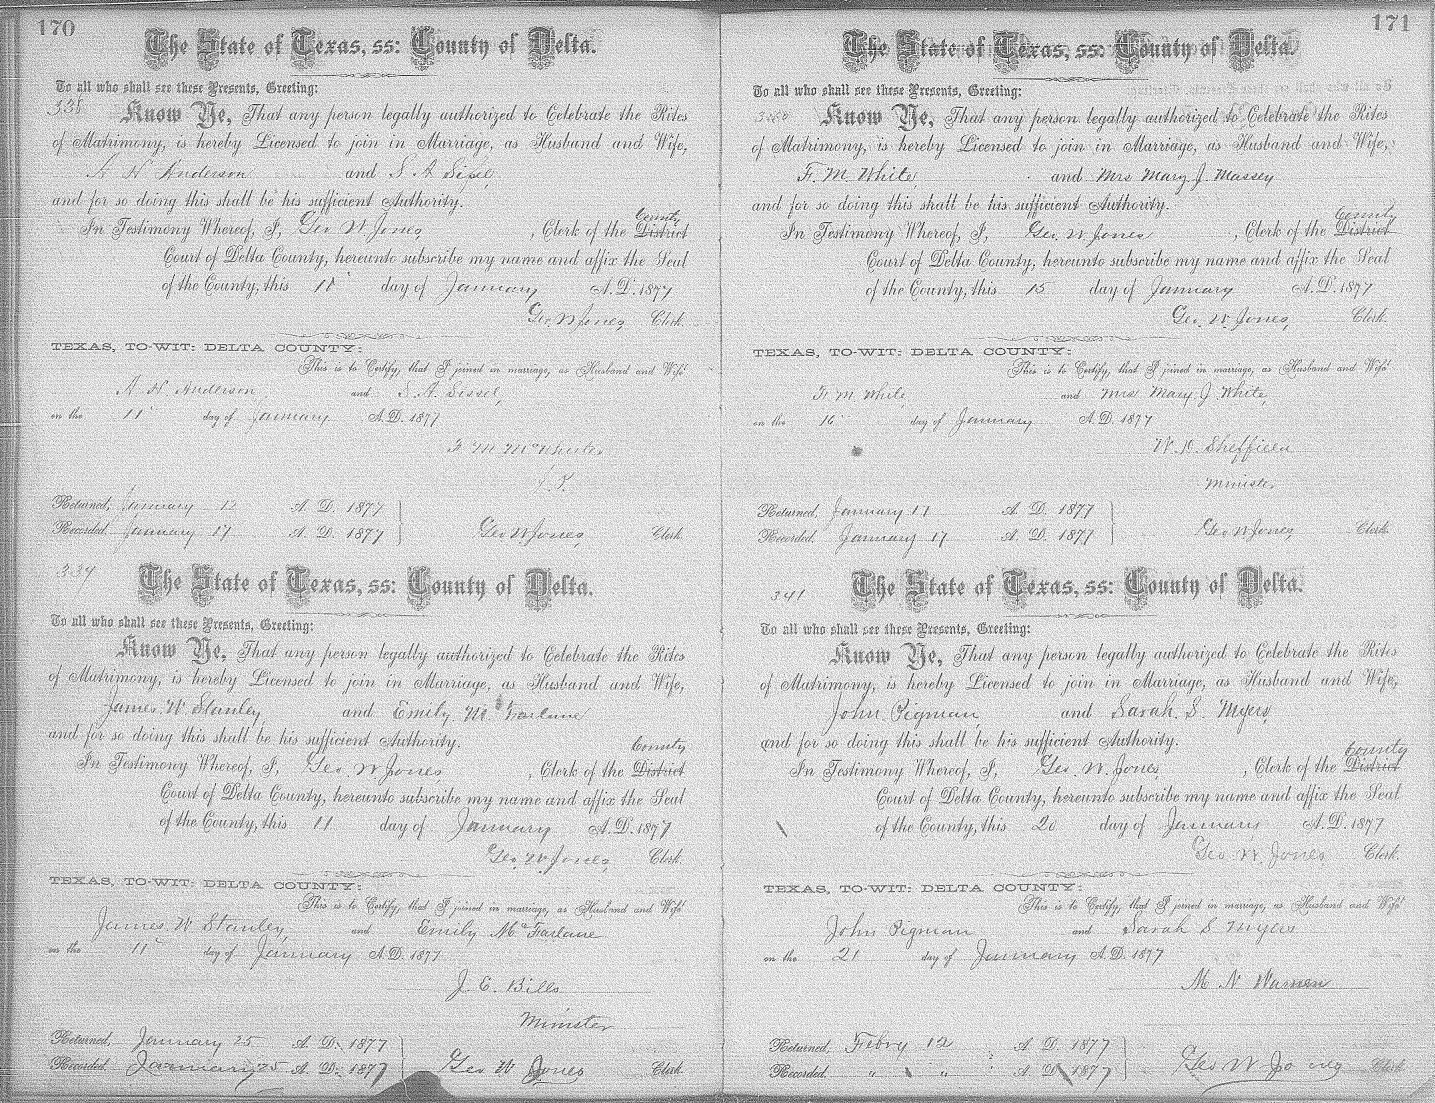 170
The State of Texas, ss: County of Delta.
To all who shall see these Presents, Greeting:
338
Know Ye, That any person legally authorized to Celebrate the Rites
of Matrimony, is hereby Licensed to join in Marriage, as Husband and Wife,
A H Anderson and S A Sissel
and for so doing this shall be his sufficient Authority.
County
In Testimony Whereof, I, Geo W Jones, Clerk of the District
Court of Delta County, hereunto subscribe my name and affix the Seal
of the County, this 11 day of January A.D. 1877
Geo W Jones, Clerk.
TEXAS, TO-WIT: DELTA COUNTY:
This is to Certify, that I joined in marriage, as Husband and Wife
A H Anderson and S. A. Sissel,
on the 11 day of January A.D. 1877
F M
Returned, January 12 A. D. 1877
Recorded. January 17 A. D. 1877 Geo W Jones, Clerk.
339
The State of Texas, ss: County of Delta.
To all who shall see these Presents, Greeting:
Know Ye, That any person legally authorized to Celebrate the Rites
of Matrimony, is hereby Licensed to join in Marriage, as Husband and Wife,
James W Stanley and Emily McFarlane
and for so doing this shall be his sufficient Authority.
County
In Testimony Whereof, I, Geo W Jones, Clerk of the District
Court of Delta County, hereunto subscribe my name and affix the Seal
of the County, this 11 day of January A.D. 1877
Geo. W. Jones, Clerk.
TEXAS, TO-WIT: DELTA COUNTY:
This is to Certify, that I joined in marriage, as Husband and Wife
James W Stanley, and Emily McFarlane
on the 11 day of January A.D. 1877
J. C. Bills
Minister
Returned, January 25 A. D. 1877
Recorded. January 25 A. D. 1877 Geo W Jones Clerk.
171
The State of Texas, ss: County of Delta.
To all who shall see these Presents, Greeting:
340
Know Ye, That any person legally authorized to Celebrate the Rites
of Matrimony, is hereby Licensed to join in Marriage, as Husband and Wife,
F. M. White, and Mrs Mary J. Massey
and for so doing this shall be his sufficient Authority.
County
In Testimony Whereof, I, Geo. W Jones, Clerk of the District
Court of Delta County, hereunto subscribe my name and affix the Seal
of the County, this 15 day of January A.D. 1877
Geo. W. Jones, Clerk.
TEXAS, TO-WIT: DELTA COUNTY:
This is to Certify, that I joined in marriage, as Husband and Wife
F. M. White, and Mrs Mary J. White,
on the 16 day of January A.D. 1877
Sheffield
Minister
Returned, January 17 A. D. 1877
Recorded. January 17 A. D. 1877 Geo W Jones, Clerk.
341
The State of Texas, ss: County of Delta.
To all who shall see these Presents, Greeting:
Know Ye, That any person legally authorized to Celebrate the Rites
of Matrimony, is hereby Licensed to join in Marriage, as Husband and Wife,
John Pigman, and Sarah S Myers,
and for so doing this shall be his sufficient Authority.
County
In Testimony Whereof, I, Geo. W. Jones, Clerk of the District
Court of Delta County, hereunto subscribe my name and affix the Seal
of the County, this 20 day of January A.D. 1877
Geo W. Jones Clerk.
TEXAS, TO-WIT: DELTA COUNTY:
This is to Certify, that I joined in marriage, as Husband and Wife
John Pigman and Sarah S Myers
on the 21 day of January A.D. 1877
M N Warren
Returned, Febry 12 A. D. 1877
Recorded. " " A. D. 1877 Geo W Jones Clerk.